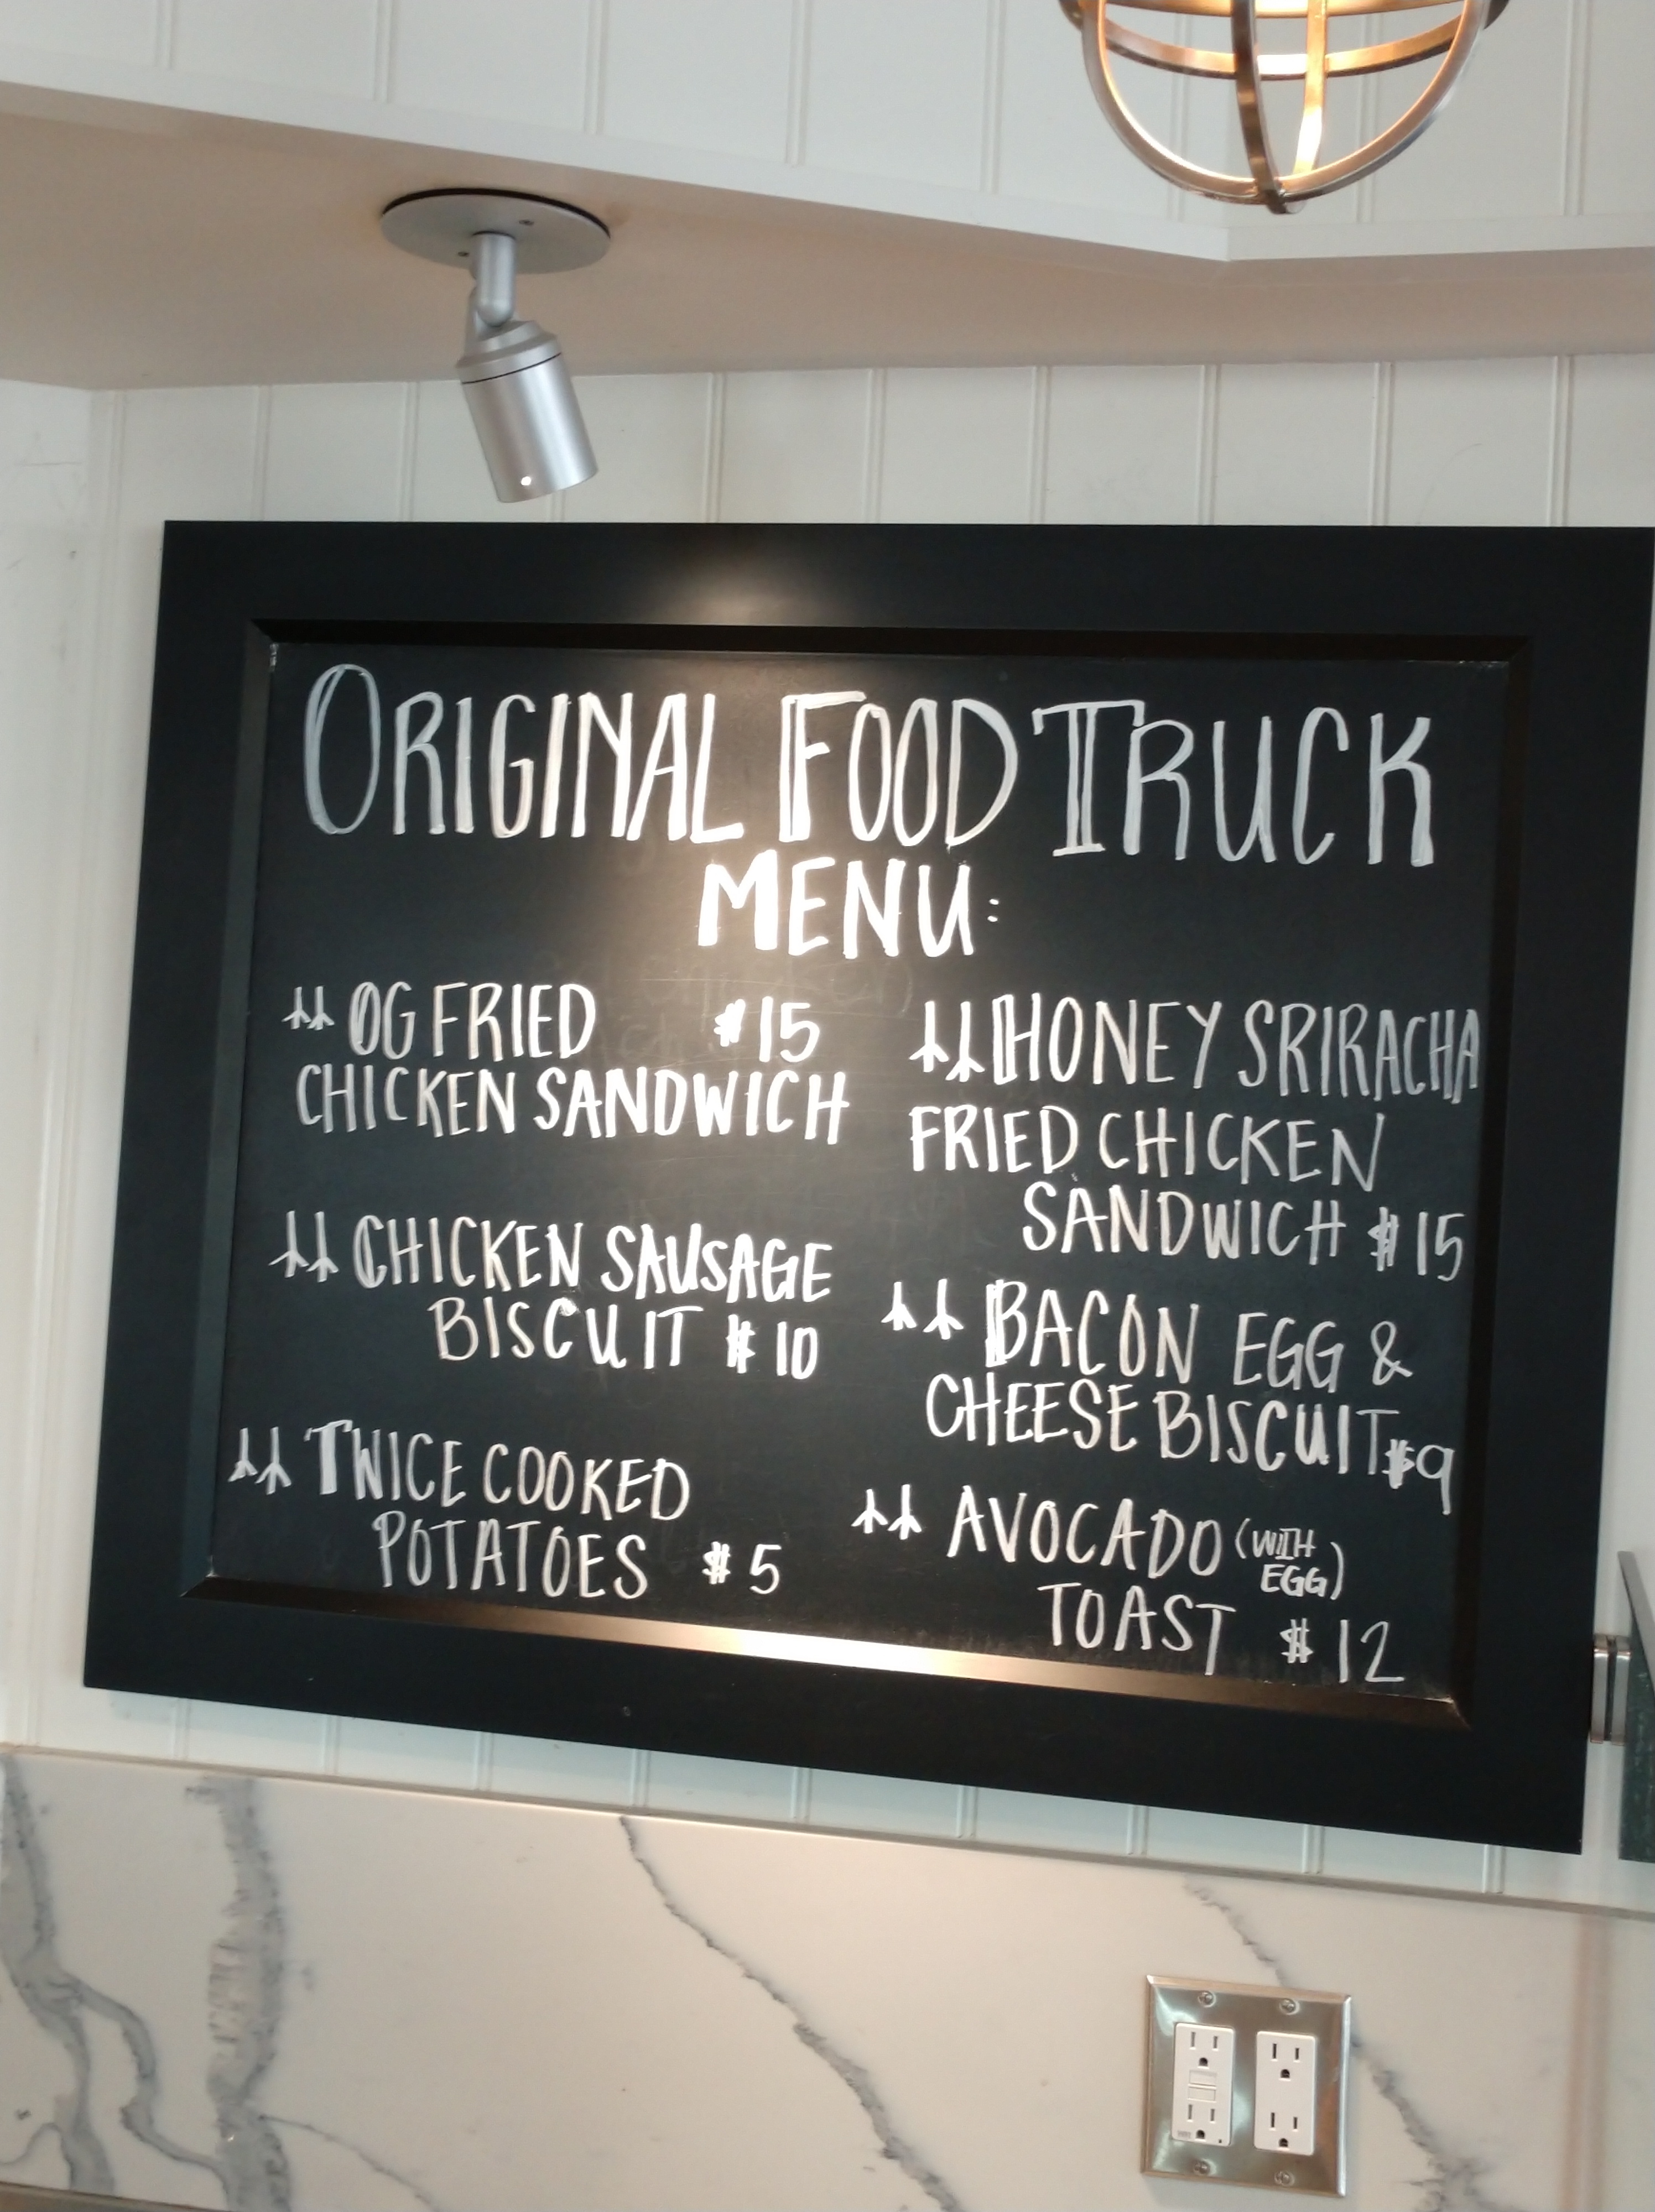 ORIGINAL FOOD TRUCK
MENU:
OG FRIED $15
CHICKEN SANDWICH
CHICKEN SAUSAGE
BISCUIT $10
TWICE COOKED
POTATOES $5
HONEY SRIRACHA
FRIED CHICKEN
SANDWICH $15
BACON EGG &
CHEESE BISCUIT $9
AVOCADO (WITH
EGG)
TOAST $12